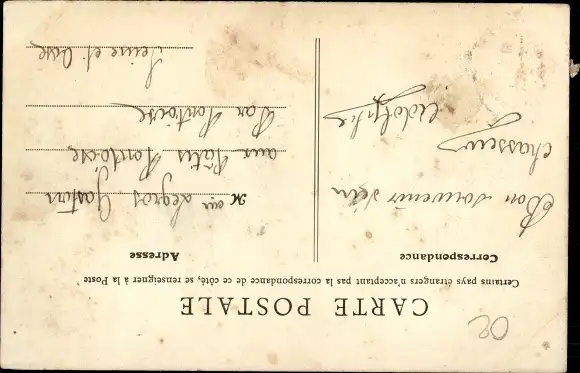 CARTE POSTALE
Certains pays étrangers n'acceptant pas la correspondance de ce côté, se renseigner à la Poste
Correspondance
Bon souvenir d'un
chasseur
Adolphe
Adresse
M Legros Gaston
aux Pâtis Pontoise
Par Pontoise
Seine et Oise
20